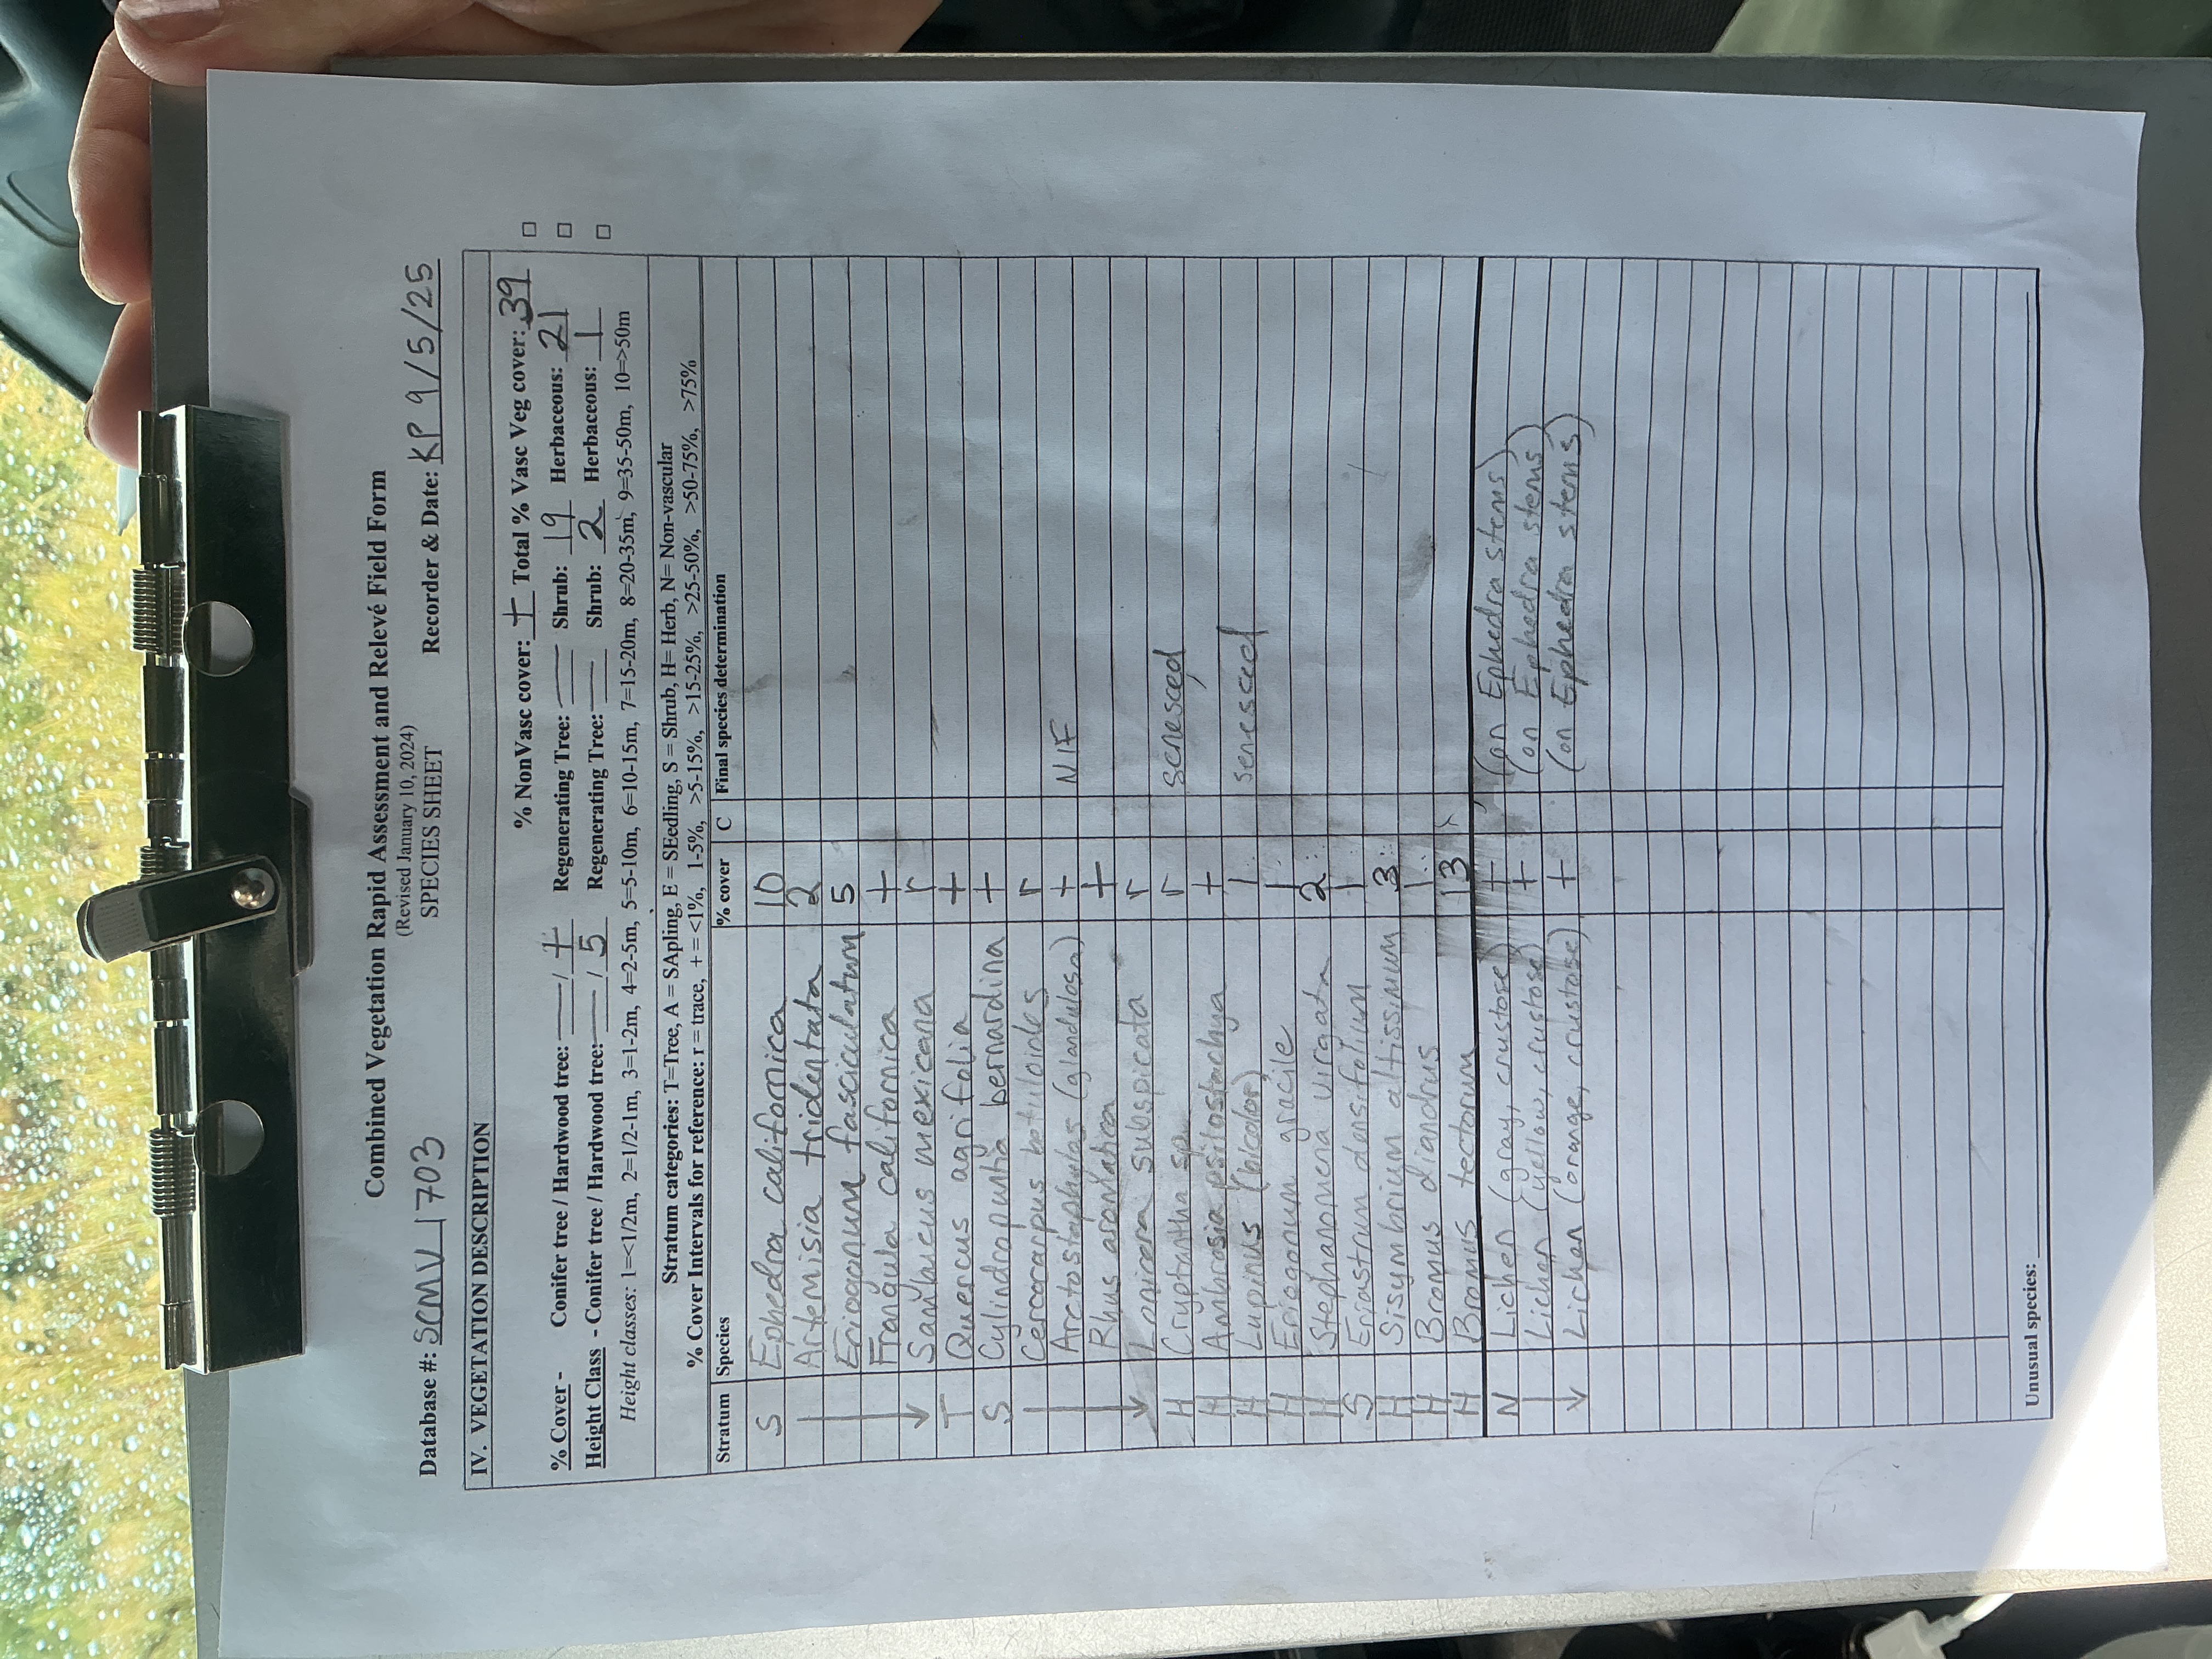 Combined Vegetation Rapid Assessment and Relevé Field Form
(Revised January 10, 2024)
SPECIES SHEET
Database #: SCMV1703 Recorder & Date: KP 9/5/25
IV. VEGETATION DESCRIPTION
% NonVasc cover: + Total % Vasc Veg cover: 39
% Cover - Conifer tree / Hardwood tree: — / + Regenerating Tree: — Shrub: 19 Herbaceous: 21
Height Class - Conifer tree / Hardwood tree: — / 5 Regenerating Tree: — Shrub: 2 Herbaceous: 1
Height classes: 1=<1/2m, 2=1/2-1m, 3=1-2m, 4=2-5m, 5=5-10m, 6=10-15m, 7=15-20m, 8=20-35m, 9=35-50m, 10=>50m
Stratum categories: T=Tree, A = SApling, E = SEedling, S = Shrub, H= Herb, N= Non-vascular
% Cover Intervals for reference: r = trace, + = <1%, 1-5%, >5-15%, >15-25%, >25-50%, >50-75%, >75%
Stratum Species % cover C Final species determination
S Ephedra californica 10
Artemisia tridentata 2
Eriogonum fasciculatum 5
Frangula californica +
Sambucus mexicana r
T Quercus agrifolia +
S Cylindropuntia bernardina +
Cercocarpus betuloides r
Arctostaphylos (glandulosa) + NIF
Rhus aromatica +
Lonicera subspicata r
H Cryptantha sp. r senesced
H Ambrosia psilostachya +
H Lupinus (bicolor) 1 senesced
H Eriogonum gracile 1
H Stephanomeria virgata 2
S Eriastrum densifolium 1
H Sisymbrium altissimum 3
H Bromus diandrus 1
H Bromus tectorum 13
N Lichen (gray, crustose) + (on Ephedra stems)
Lichen (yellow, crustose) + (on Ephedra stems)
Lichen (orange, crustose) + (on Ephedra stems)
Unusual species: